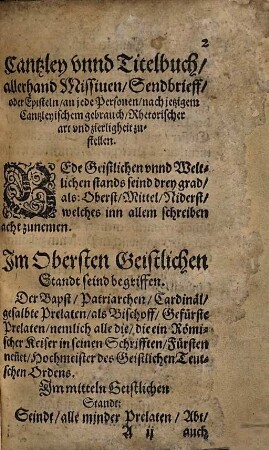 2
Cantzley vnnd Titelbuch/
allerhand Missiuen/Sendbrieff/
oder Episteln/an jede Personen/nach jetzigem
Cantzleyischem gebrauch/Rhetorischer
art vnd zierligheit zu-
stellen.
JEde Geistlichen vnnd Welt-
lichen stands seind drey grad/
als: Oberst/Mittel/Niderst/
welches inn allem schreiben
acht zunemen.
Im Obersten Geistlichen
Standt seind begriffen.
Der Bapst/Patriarchen/Cardinäl/
gesalbte Prelaten/als Bischoff/Gefürste
Prelaten/nemlich alle die/die ein Römi-
scher Keiser in seinen Schrifften/Fürsten
nennet/Hochmeister des Geistlichen Teut-
schen Ordens.
Im mitteln Geistlichen
Standt:
Seindt/alle minder Prelaten/Abt/
A ij auch